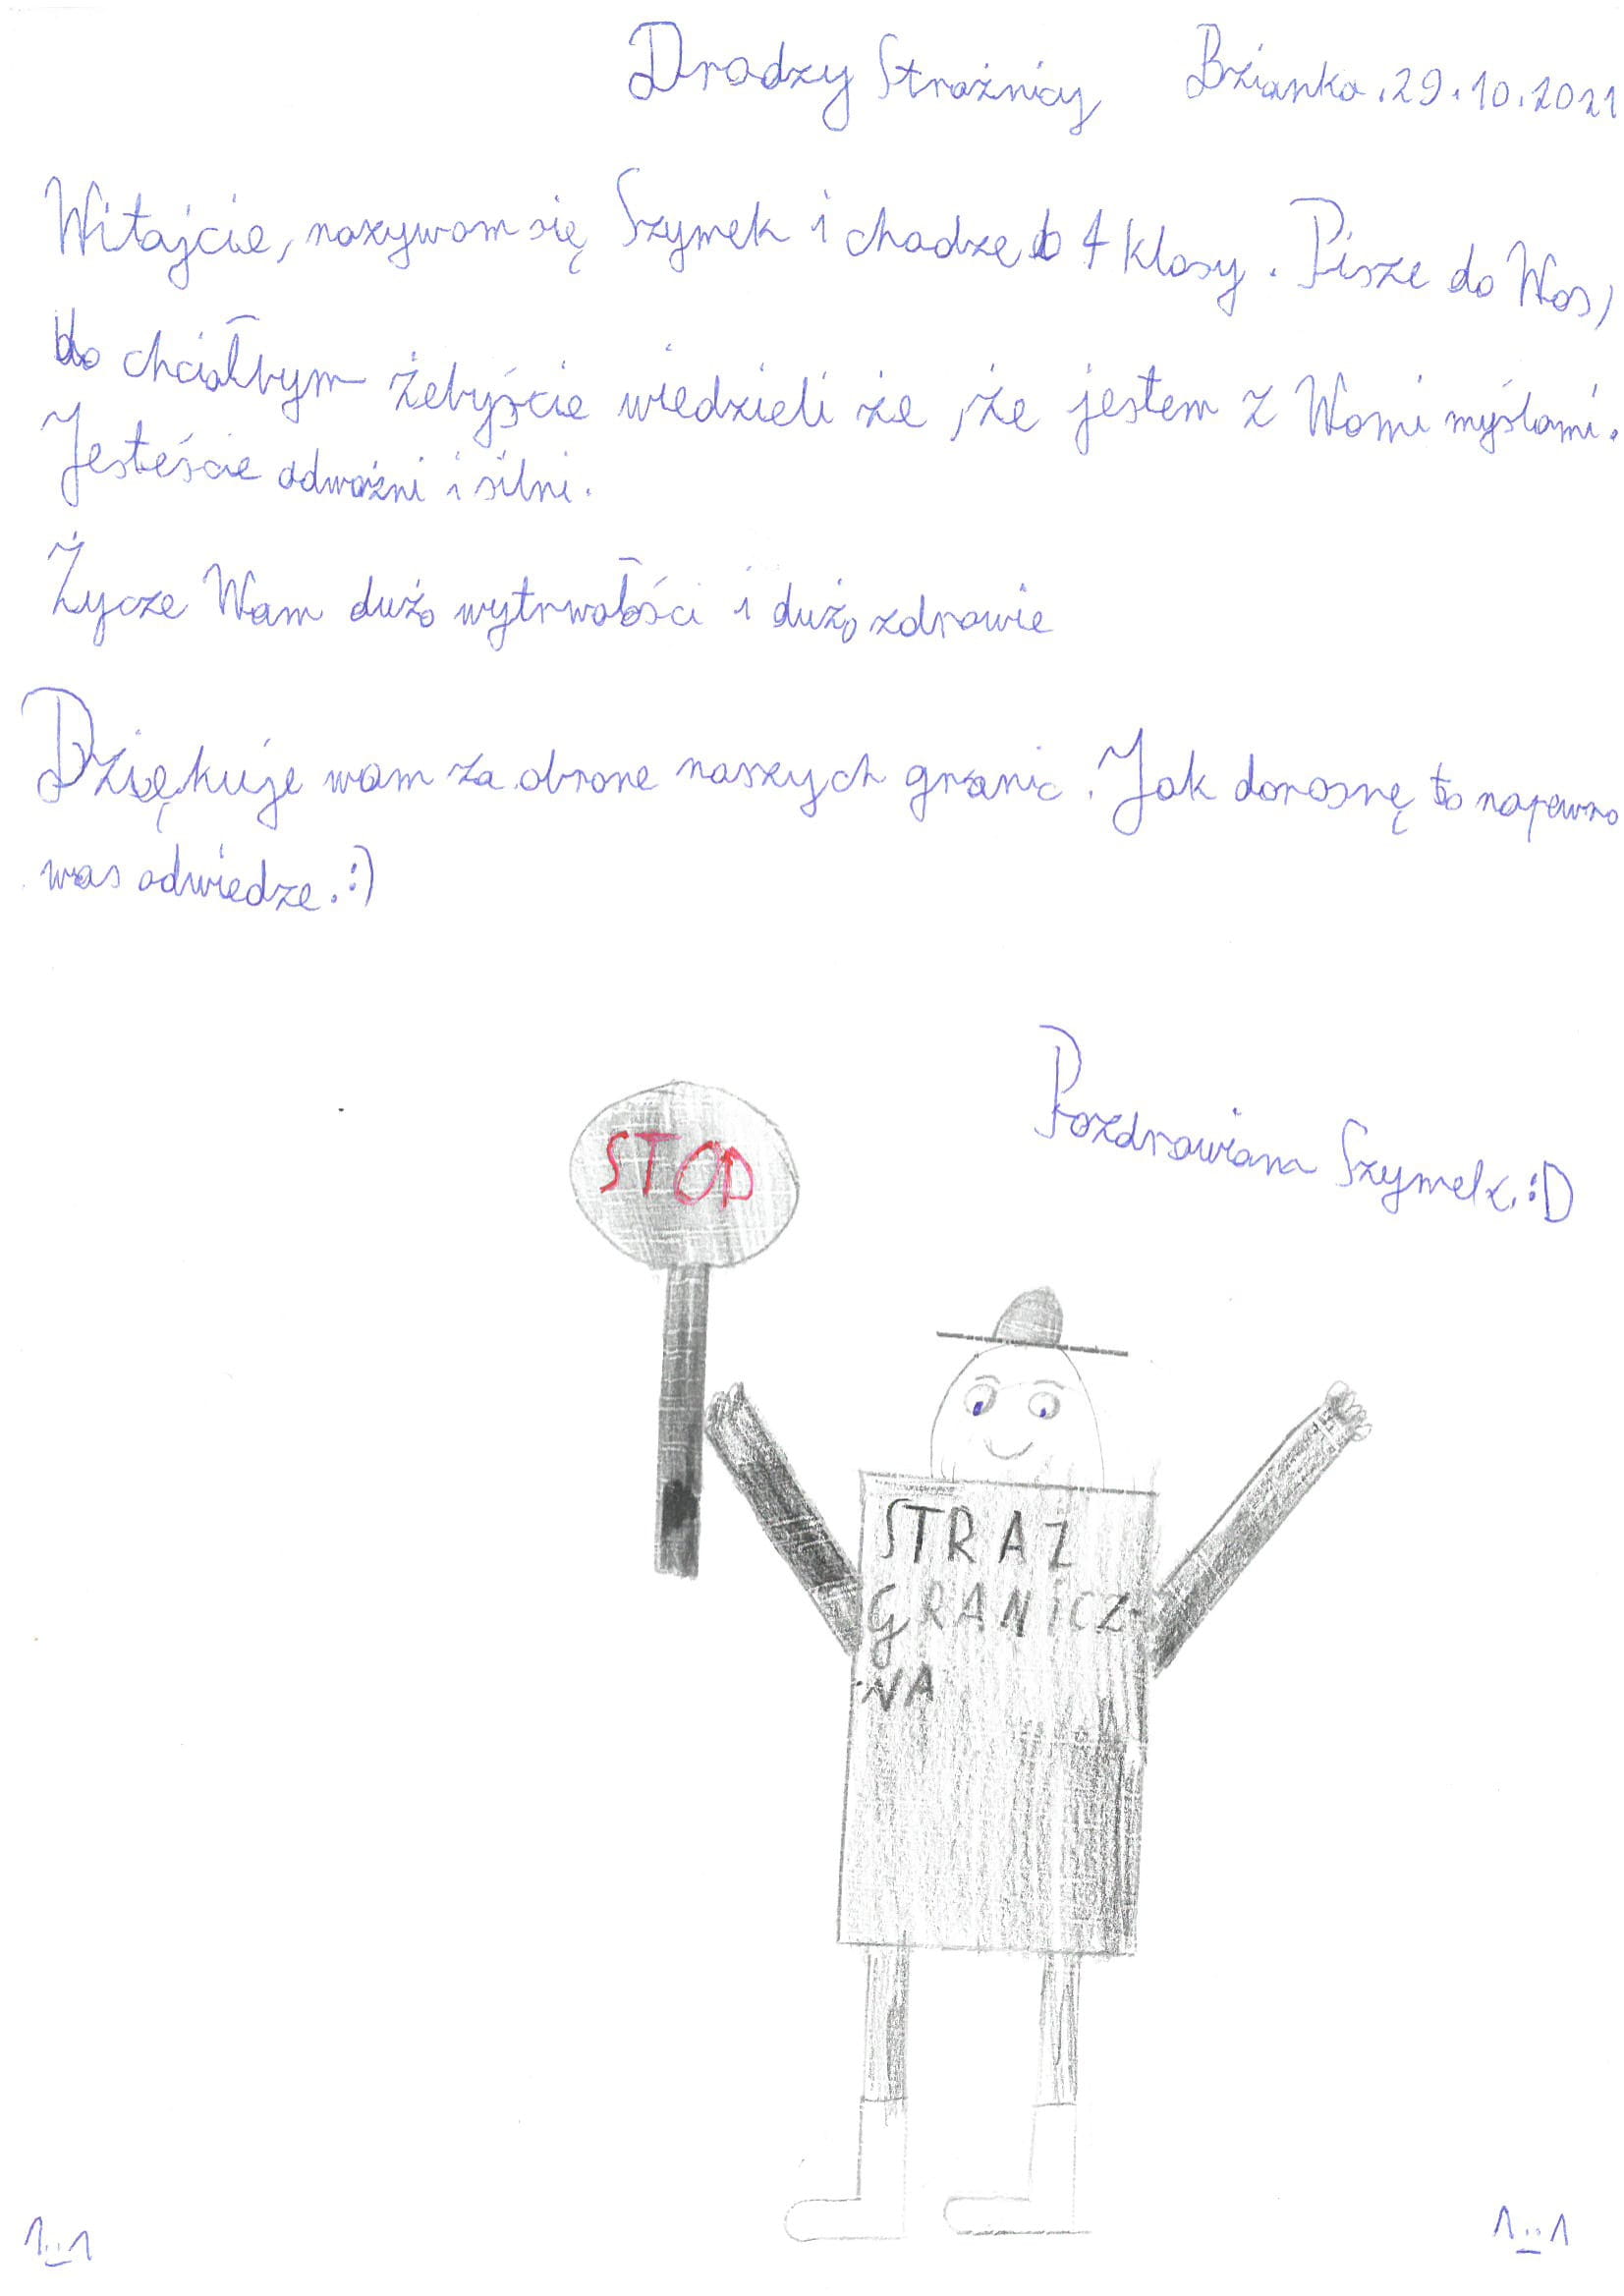 Drodzy Strażnicy Bzianka.29.10.2021
Witajcie, nazywam się Szymek i chodze do 4 klasy. Pisze do Was,
bo chciałbym żebyście wiedzieli że ,że jestem z Wami myślami.
Jesteście odważni i silni.
Życze Wam dużo wytrwałości i dużo zdrowie
Dziękuje wam za obrone naszych granic. Jak dorosnę to napewno
was odwiedze. :)
Pozdrawiam Szymek. :D
STOP
STRAZ
GRANICZ-
NA
1..1
1..1